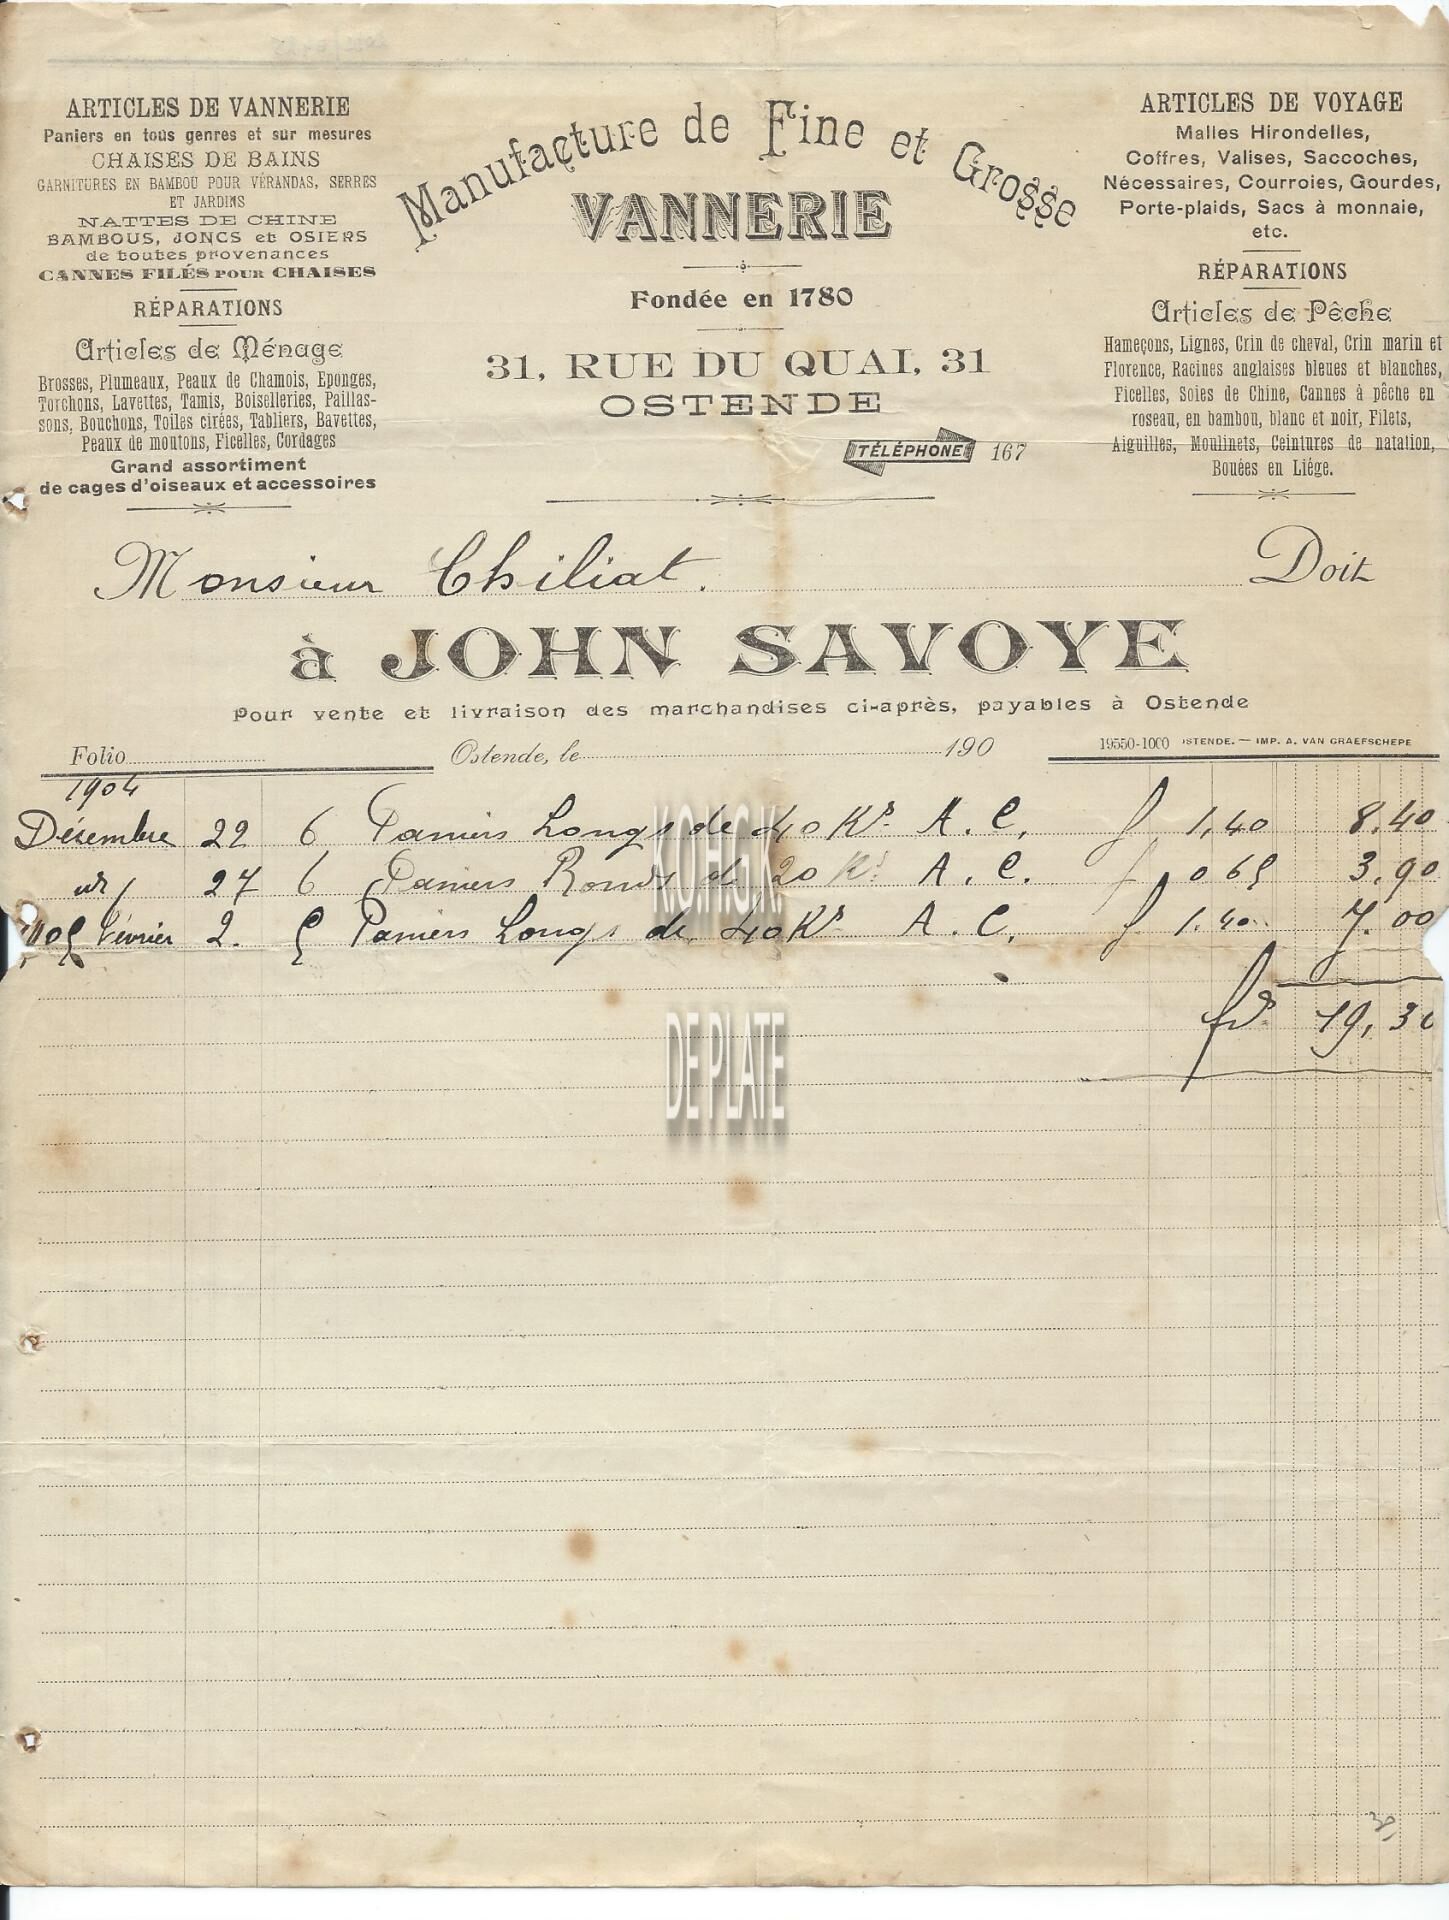 ARTICLES DE VANNERIE
Paniers en tous genres et sur mesures
CHAISES DE BAINS
GARNITURES EN BAMBOU POUR VÉRANDAS, SERRES
ET JARDINS
NATTES DE CHINE
BAMBOUS, JONCS et OSIERS
de toutes provenances
CANNES FILÉS POUR CHAISES
RÉPARATIONS
Articles de Ménage
Brosses, Plumeaux, Peaux de Chamois, Eponges,
Torchons, Lavettes, Tamis, Boiselleries, Paillas-
sons, Bouchons, Toiles cirées, Tabliers, Bavettes,
Peaux de moutons, Ficelles, Cordages
Grand assortiment
de cages d'oiseaux et accessoires
Manufacture de Fine et Grosse
VANNERIE
Fondée en 1780
31, RUE DU QUAI, 31
OSTENDE
TÉLÉPHONE 167
ARTICLES DE VOYAGE
Malles Hirondelles,
Coffres, Valises, Saccoches,
Nécessaires, Courroies, Gourdes,
Porte-plaids, Sacs à monnaie,
etc.
RÉPARATIONS
Articles de Pêche
Hameçons, Lignes, Crin de cheval, Crin marin et
Florence, Racines anglaises bleues et blanches,
Ficelles, Soies de Chine, Cannes à pêche en
roseau, en bambou, blanc et noir, Filets,
Aiguilles, Moulinets, Ceintures de natation,
Bouées en Liége.
Monsieur Chiliat. Doit
à JOHN SAVOYE
Pour vente et livraison des marchandises ci-après, payables à Ostende
Folio Ostende, le 190 19550-1000 OSTENDE. — IMP. A. VAN GRAEFSCHEPE
1904
Désembre 22 6 Paniers Longs de 40 Ks A. C. f 1,40 8.40
27 6 Paniers Ronds de 20 Ks A. C. f 0 65 3,90
1905 Février 2. 5 Paniers Longs de 40 Ks A. C. f 1.40 7.00
frs 19,30
K.O.H.G.K.
DE PLATE